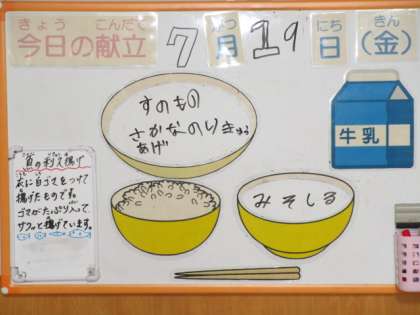 きょう こんだて がつ にち きん
今日の献立 7月19日(金)
すのもの
さかなのりきゅう
あげ
牛乳
みそしる
魚の利久揚げ
衣に白ゴマをつけて
揚げたものです。
ゴマがたっぷり入って、
サクッと揚げています。